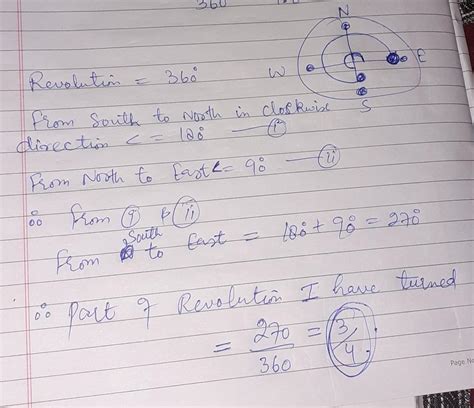 360
N
W
E
S
Revolution = 360°
From South to North in clockwise
direction < = 180° — (i)
From North to East < = 90° — (ii)
∴ From (i) & (ii)
South
From to East = 180° + 90° = 270°
∴ Part of Revolution I have turned
= 270/360 = 3/4.
Page No